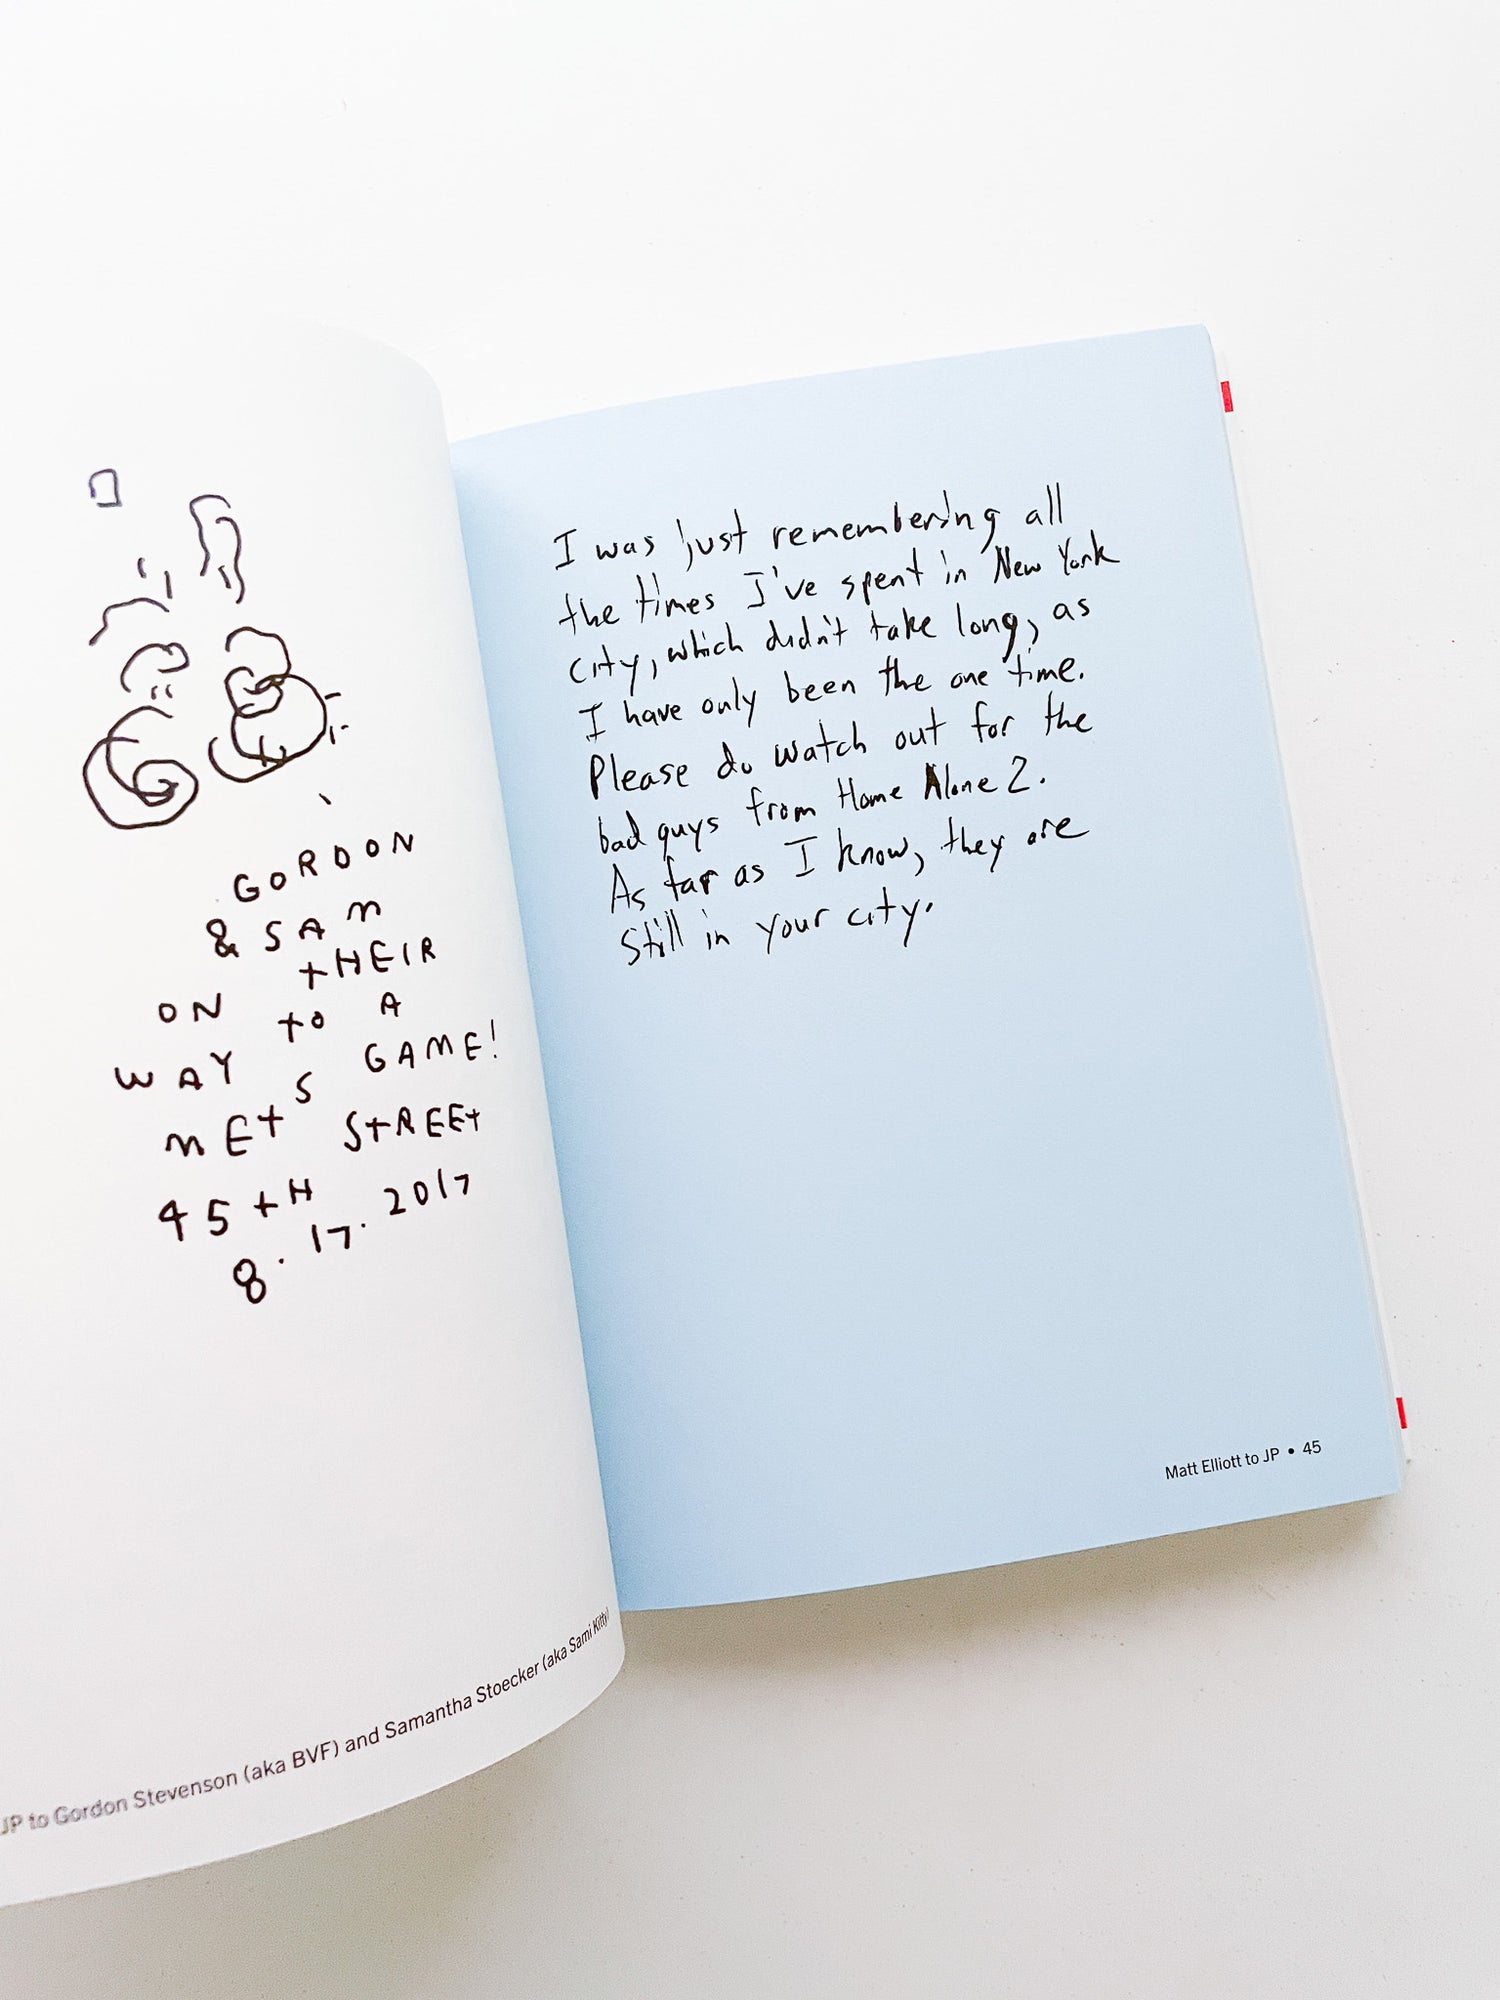 GORDON
& SAM
ON THEIR
WAY TO A
METS GAME!
45TH STREET
8.17.2017
JP to Gordon Stevenson (aka BVF) and Samantha Stoecker (aka Sami Kitty)
I was just remembering all
the times I've spent in New York
City, which didn't take long, as
I have only been the one time.
Please do watch out for the
bad guys from Home Alone 2.
As far as I know, they are
still in your city.
Matt Elliott to JP • 45